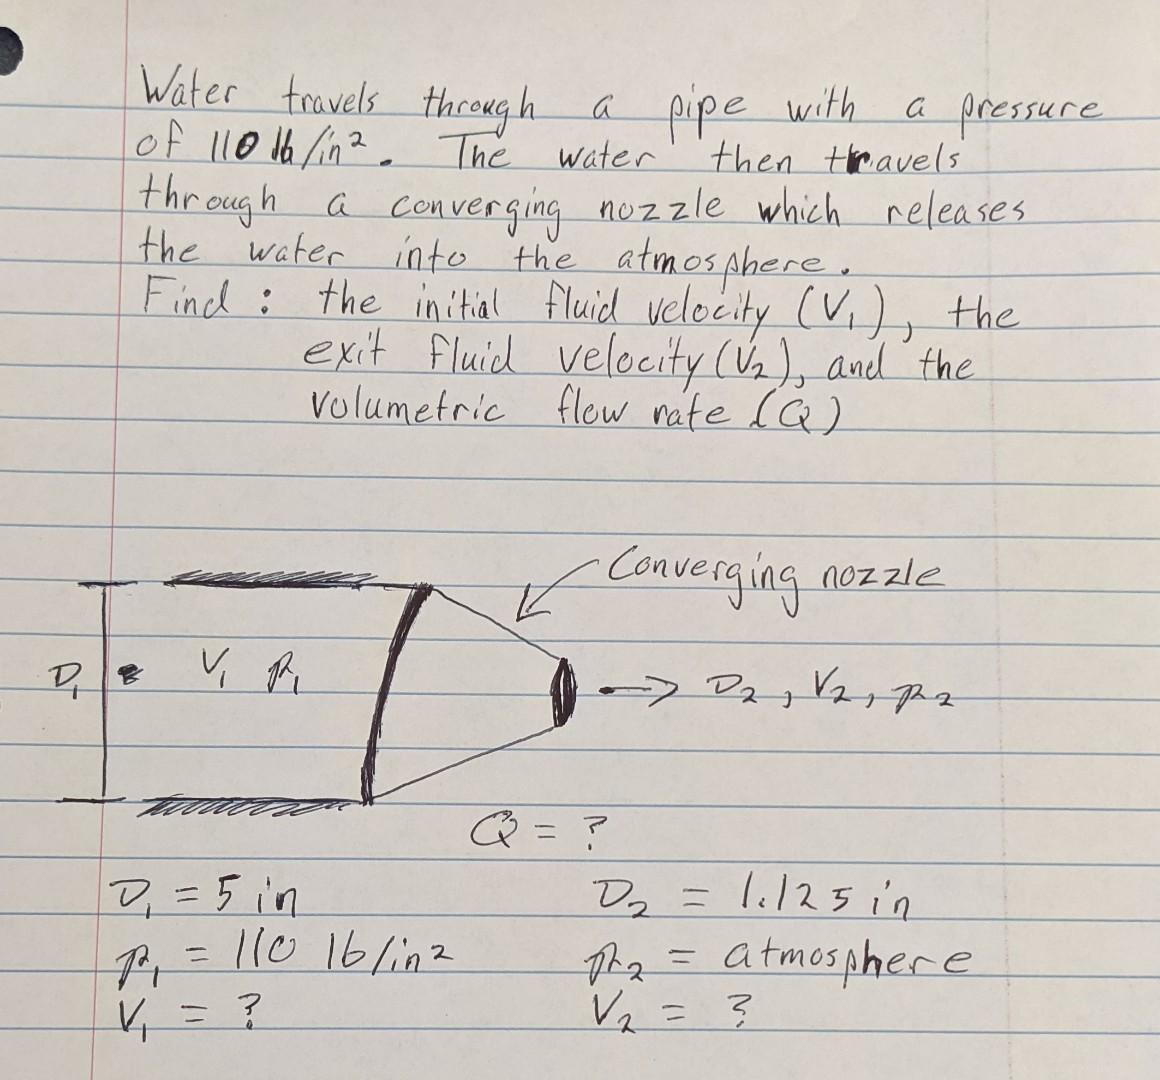 Water travels through a pipe with a pressure
of 110 lb/in². The water then travels
through a converging nozzle which releases
the water into the atmosphere.
Find: the initial fluid velocity (V₁), the
exit fluid velocity (V₂), and the
volumetric flow rate (Q)
Converging nozzle
D₁ V₁ p₁ → D₂, V₂, p₂
Q = ?
D₁ = 5 in D₂ = 1.125 in
p₁ = 110 lb/in² p₂ = atmosphere
V₁ = ? V₂ = ?